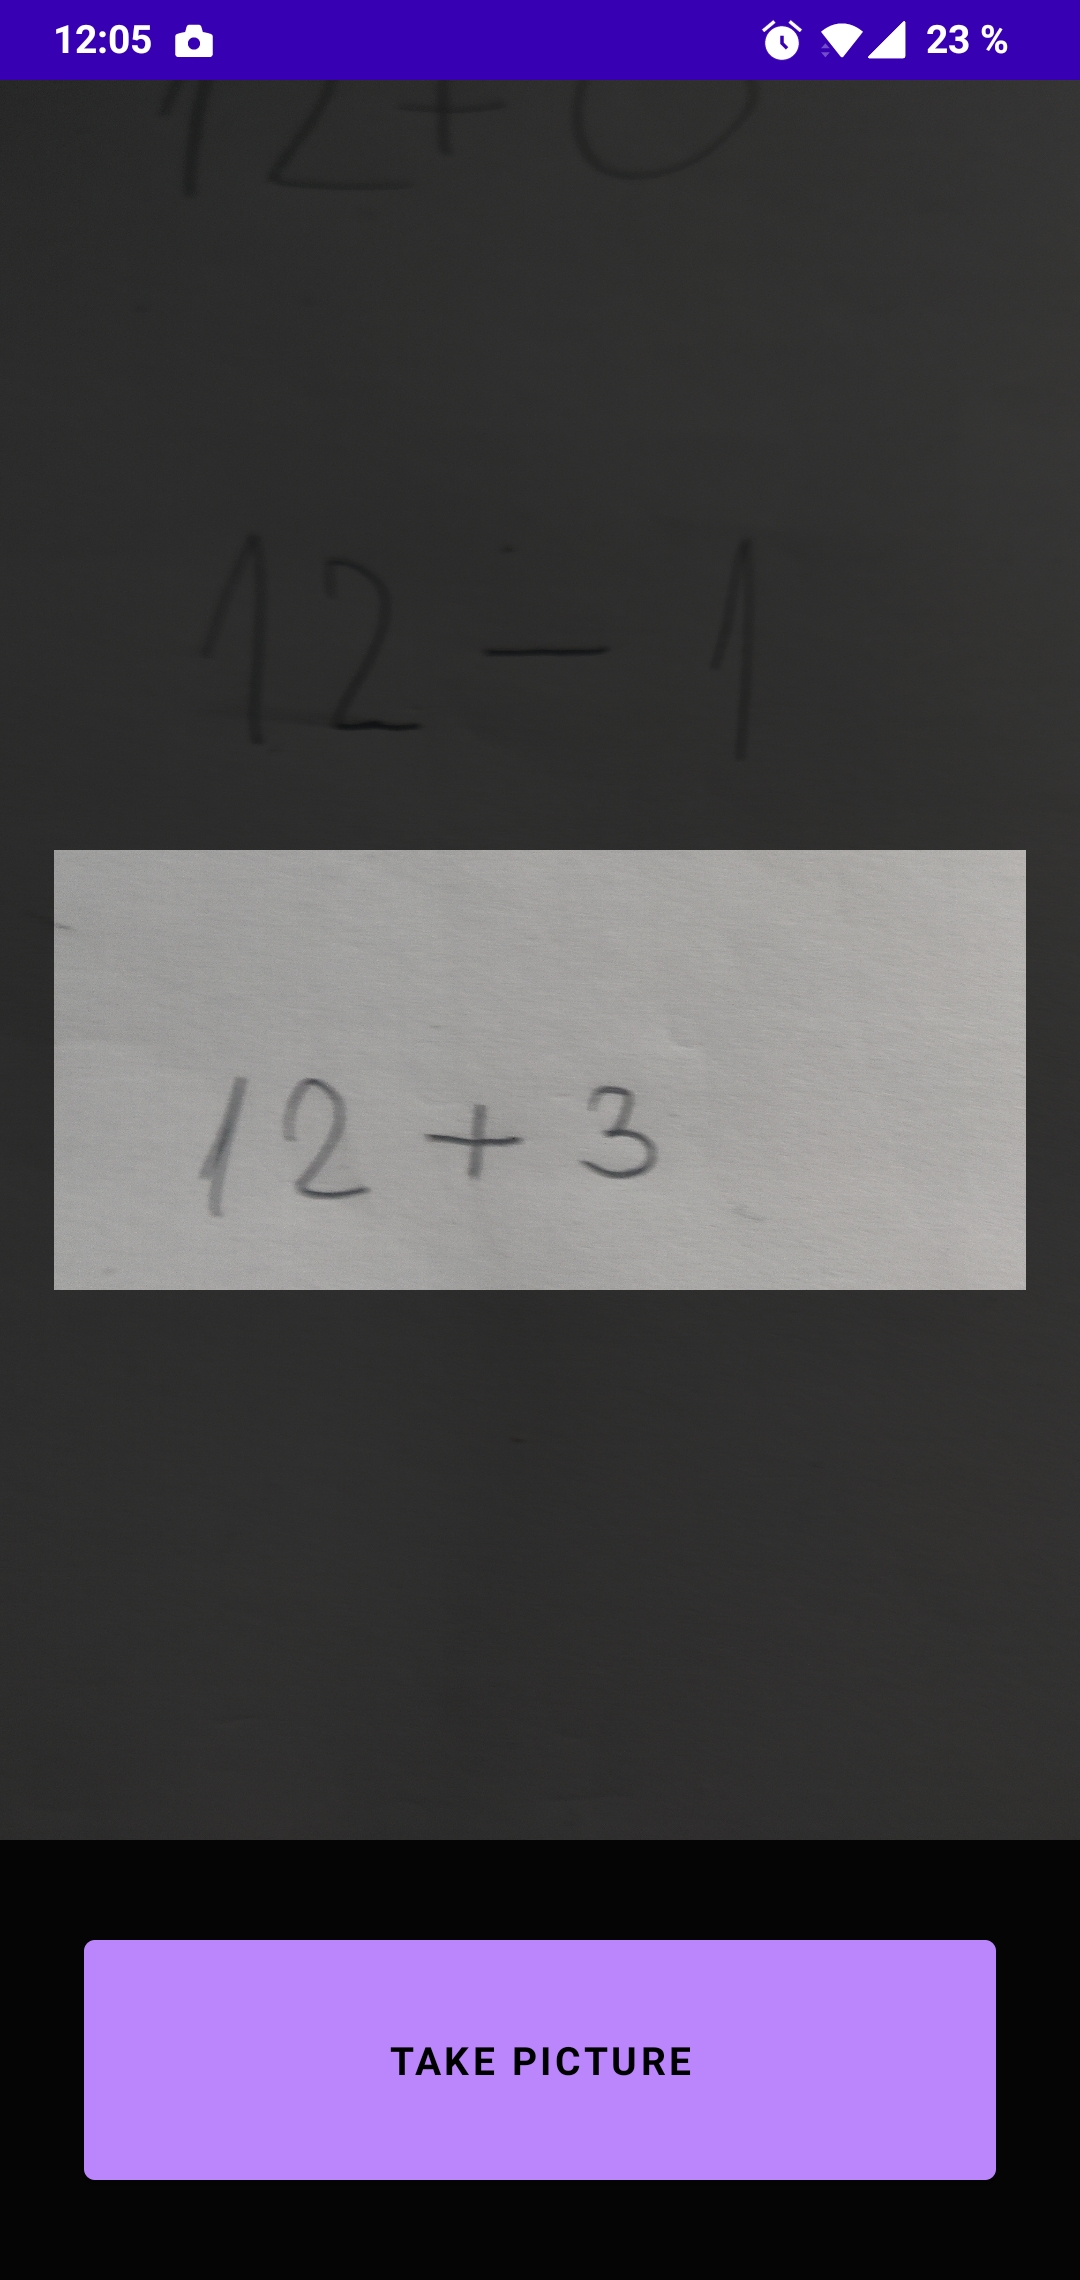 12:05 23 %
12 - 1
12 + 3
TAKE PICTURE